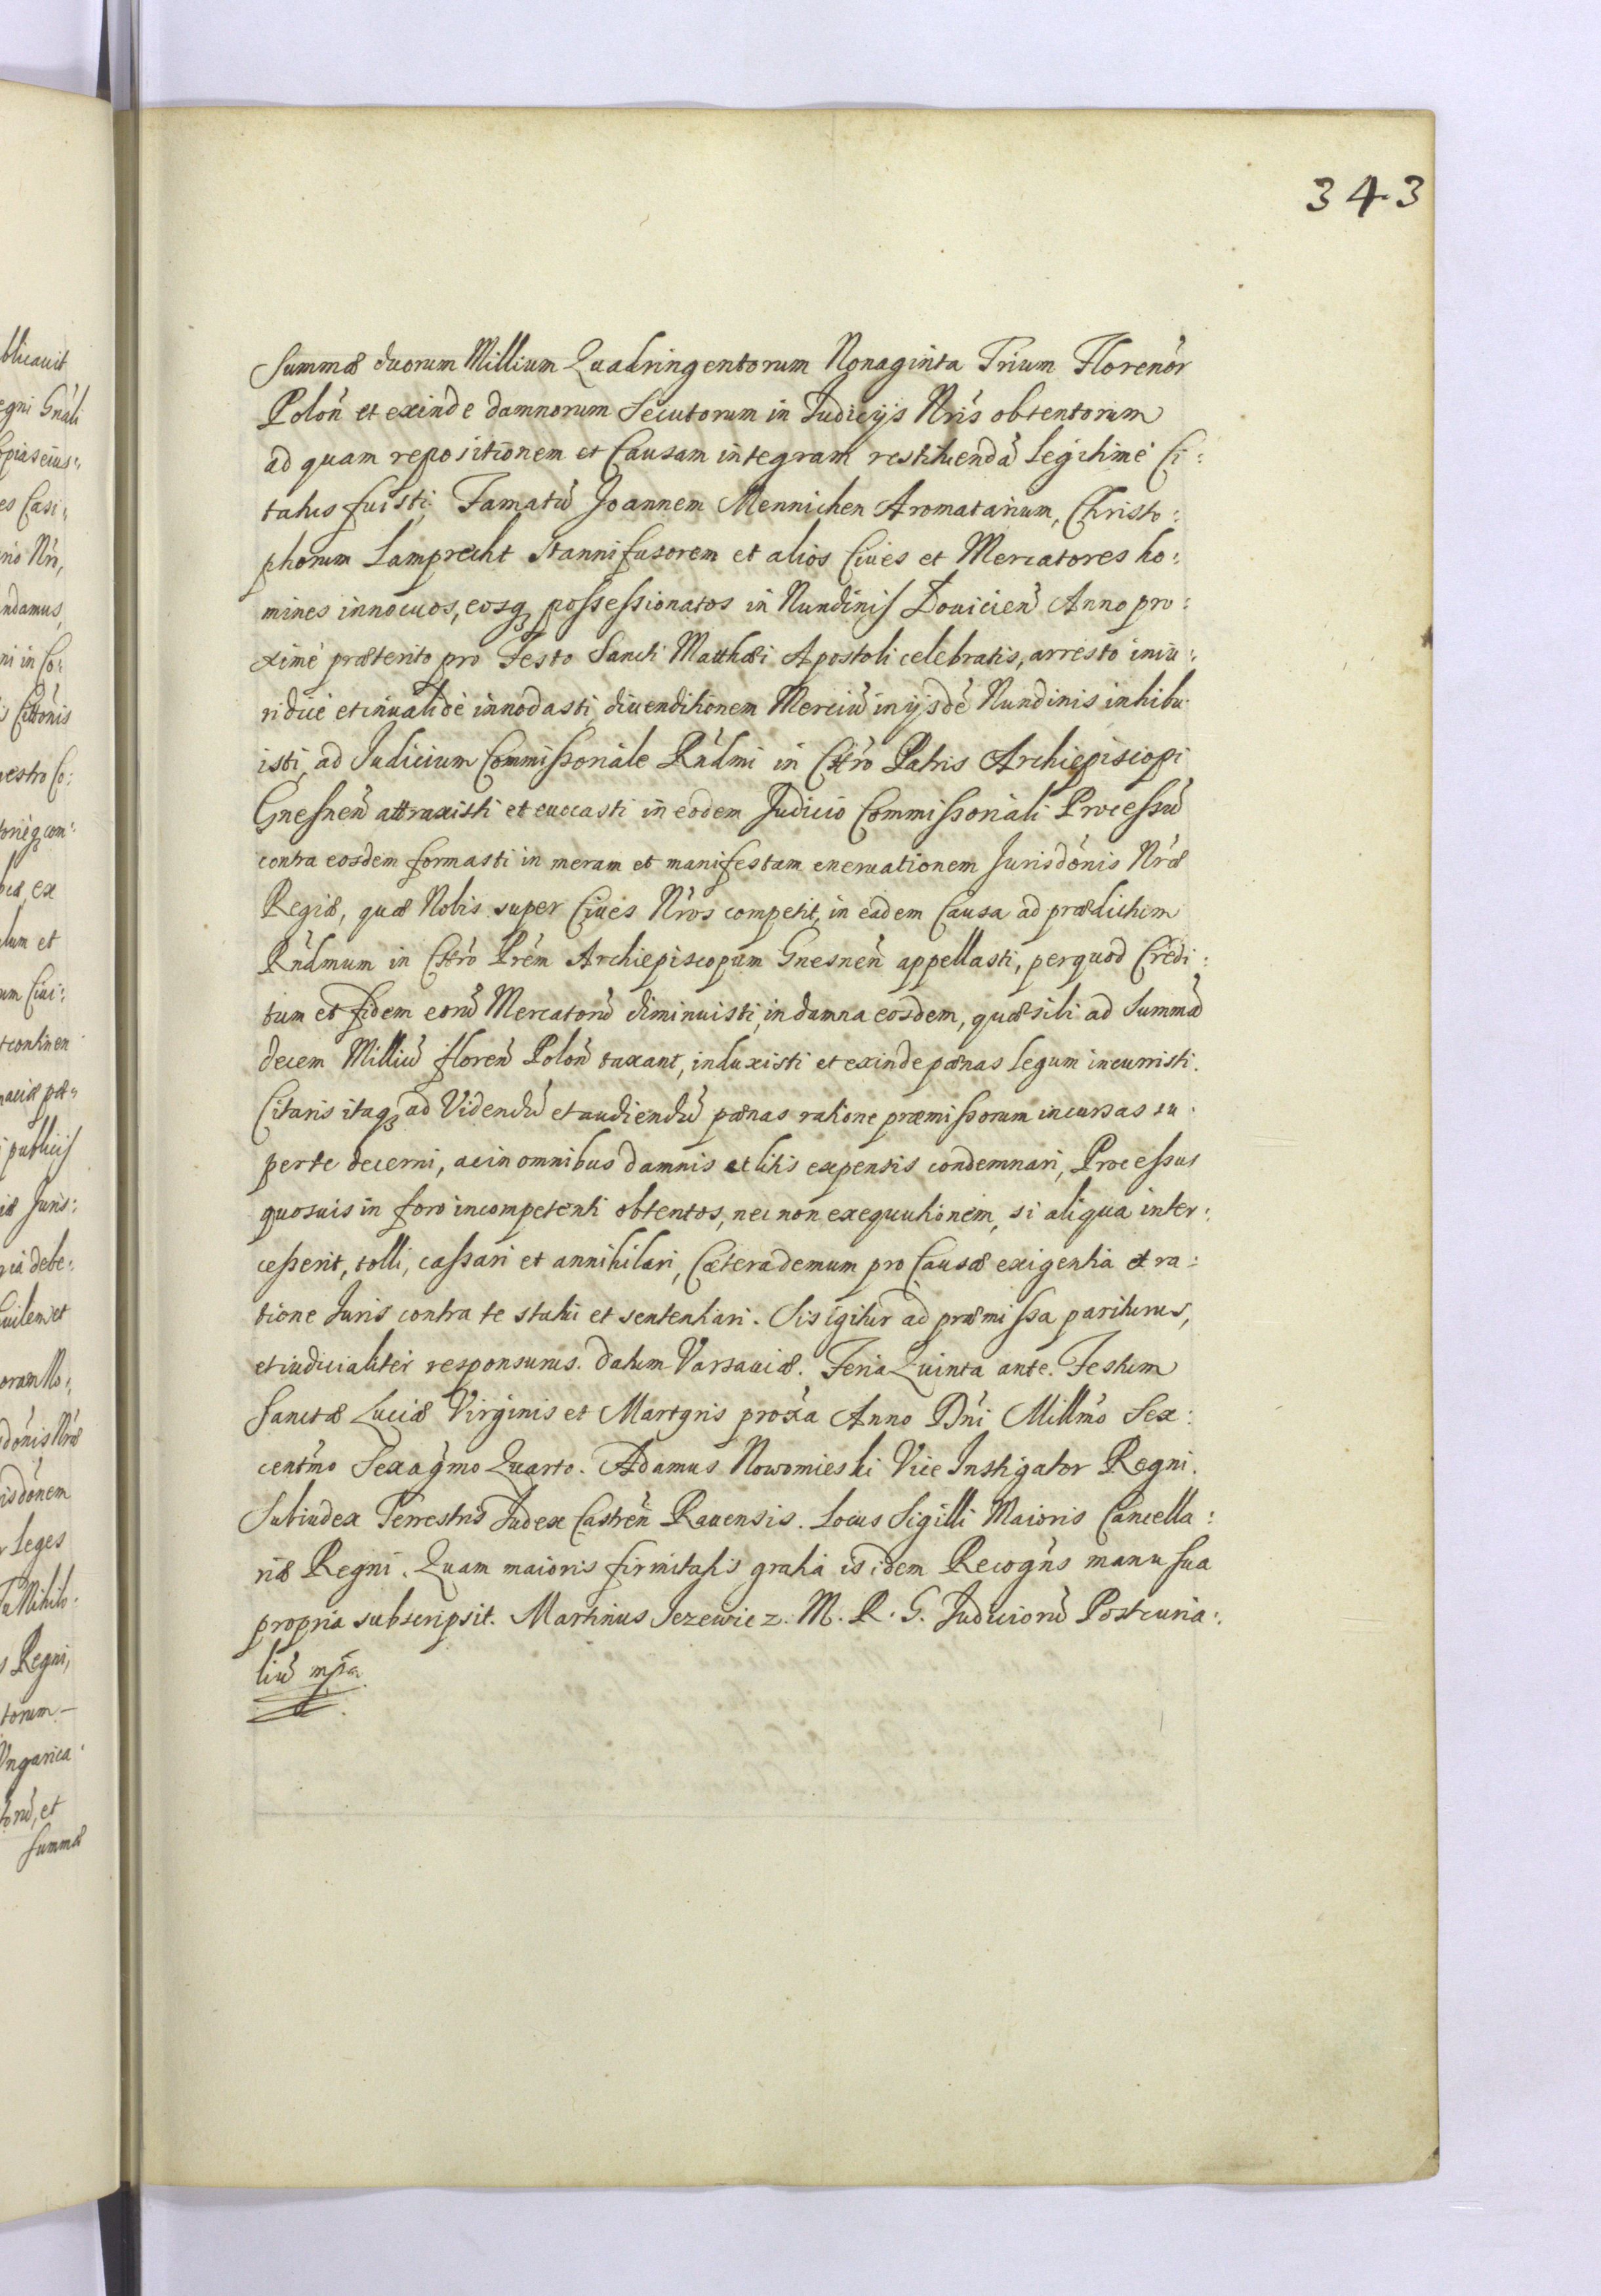 343
Summæ duorum Millium Quadringentorum Nonaginta Trium Florenor̃
Poloñ et exinde damnorum Secutorum in Iudicijs Nr̃is obtentorum
ad quam repositionem et Causam integram restituendã legitimè Ci:
tatus fuisti, Famatũ Joannem Mennichen Aromatarium, Christo:
phorum Lamprecht Stannifusorem et alios Ciues et Mercatores ho:
mines innocuos, eosq; possessionatos in Nundinis Louicieñ Anno pro:
ximè præterito pro Festo Sancti Matthæi Apostoli celebratis, arresto iniu:
ridicè et inualidè innodasti, diuenditionem Merciũ in ijsdẽ Nundinis inhibu:
isti, ad Iudicium Commissoriale Rñdmi in Chr̃o Patris Archiepiscopi
Gnesneñ attraxisti et euocasti in eodem Judicio Commissoriali Processũ
contra eosdem formasti in meram et manifestam eneruationem Jurisdõnis Nr̃æ
Regiæ, quæ Nobis super Ciues Nr̃os competit, in eadem Causa ad prædictum
Rñdmum in Chr̃o Pr̃em Archiepiscopum Gnesneñ appellasti, per quod Credi:
tum et fidem eorũ Mercatorũ diminuisti, in damna eosdem, quæ sibi ad Summã
decem Milliũ floreñ Poloñ taxant, induxisti et exinde pœnas legum incurristi.
Citaris itaq; ad Videndũ et audiendũ pœnas ratione præmissorum incursas su:
per te decerni, ac in omnibus damnis et litis expensis condemnari, Processus
quosuis in foro incompetenti obtentos, nec non exequutionem, si aliqua inter:
cesserit, tolli, cassari et annihilari, Cætera demum pro Causæ exigentia et ra:
tione Iuris contra te statui et sententiari. Sis igitur ad præmissa pariturus,
et iudicialiter responsurus. Datum Varsauiæ. Feria Quinta ante Festum
Sanctæ Luciæ Virginis et Martyris prox̃a Anno Dñi Millm̃o Sex:
centm̃o Sexagm̃o Quarto. Adamus Nowomieski Vice Instigator Regni.
Subiudex Terrestris Judex Castreñ Rauensis. Locus Sigilli Maioris Cancella:
riæ Regni. Quam maioris firmitatis gratia is idem Recogñs manu sua
propria subscripsit. Martinus Jezewicz. M. R. G. Judiciorũ Postcuria:
liũ mpr̃a